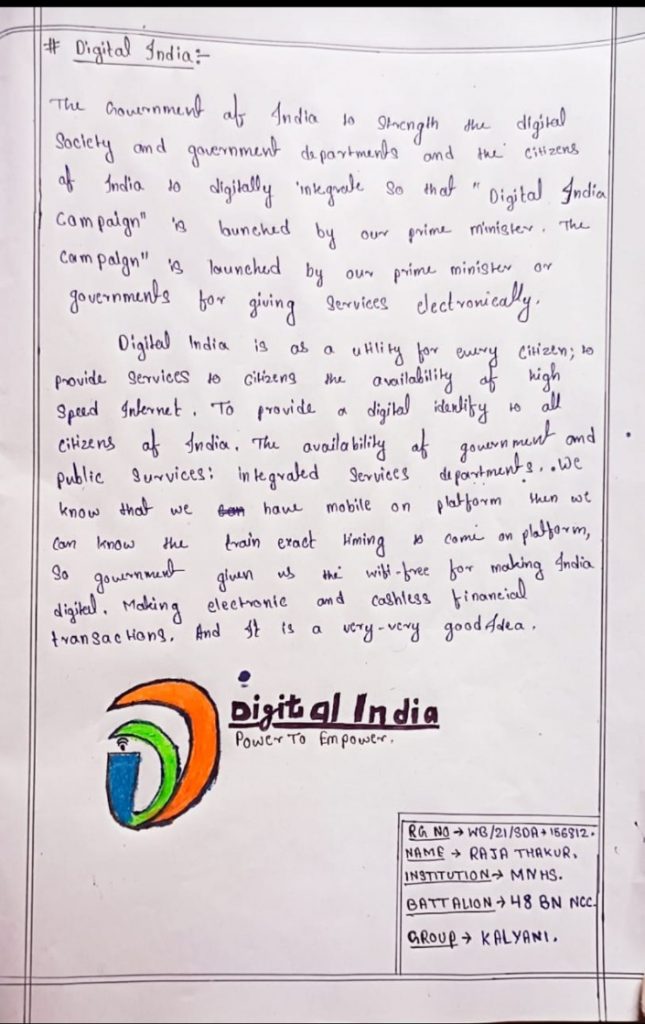 # Digital India:-
The Government of India to strength the digital
Society and government departments and the citizens
of India to digitally integrate So that "Digital India
Campaign" is launched by our prime minister. The
Campaign" is launched by our prime minister or
governments for giving Services electronically.
Digital India is as a utility for every Citizen; to
provide Services to citizens the availability of high
Speed Internet. To provide a digital identify to all
citizens of India. The availability of government and
public Survices: integrated Services departments.. We
know that we have mobile on platform then we
Can know the train exact timing to come on platform,
So government given us the wifi-free for making India
digital. Making electronic and cashless financial
transactions. And It is a very-very good Idea.
Digital India
Power To Empower.
RG NO → WB/21/SDA+156812.
NAME → RAJA THAKUR.
INSTITUTION → MNHS.
BATTALION → 48 BN NCC.
GROUP → KALYANI.